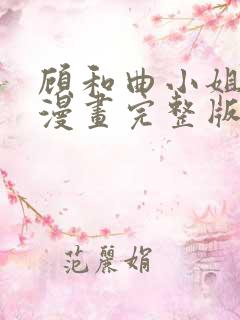 顾和曲小姐
漫畫完整版
范麗娟